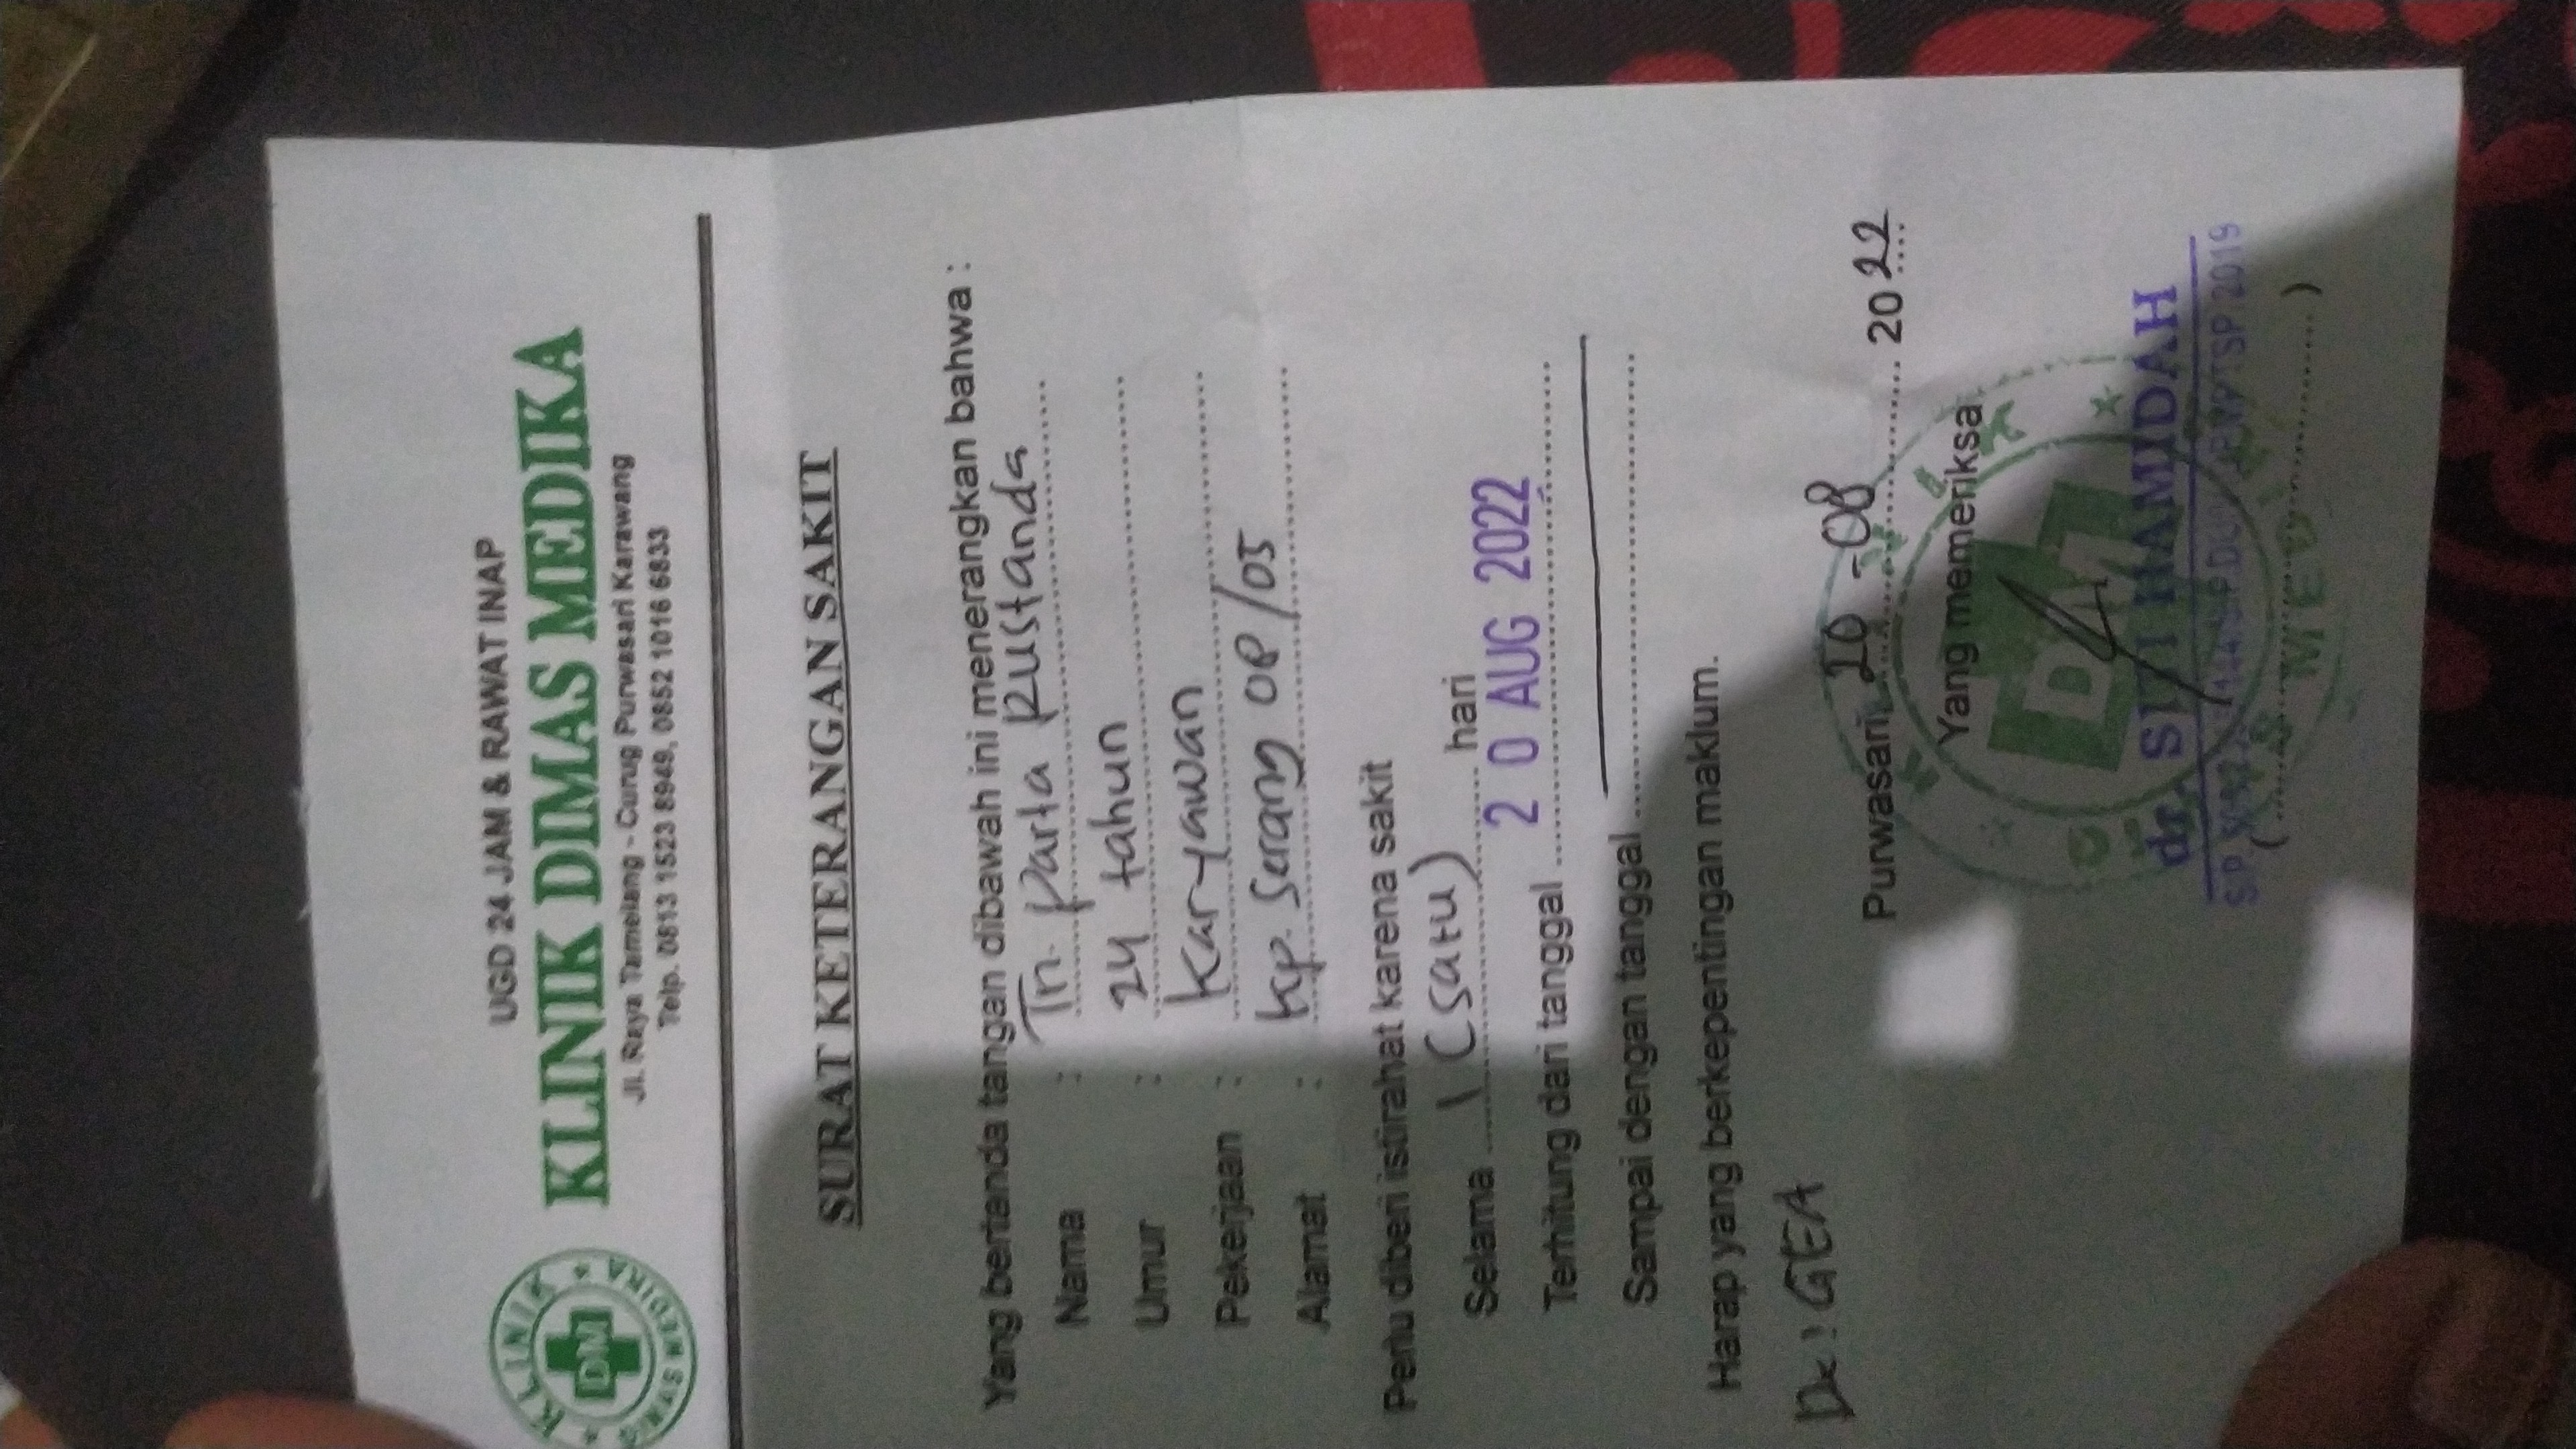 UGD 24 JAM & RAWAT INAP
KLINIK DIMAS MEDIKA
Jl. Raya Tamelang - Curug Purwasari Karawang
Telp. 0813 1523 8949, 0852 1016 6833
KLINIK
DM
DIMAS MEDIKA
SURAT KETERANGAN SAKIT
Yang bertanda tangan dibawah ini menerangkan bahwa :
Nama : Tn. Parta Rustanda
Umur : 24 tahun
Pekerjaan : Karyawan
Alamat : Kp. Serang 08/05
Perlu diberi istirahat karena sakit
Selama 1 (satu) hari
Terhitung dari tanggal 20 AUG 2022
Sampai dengan tanggal
Harap yang berkepentingan maklum.
Dx : GEA
Purwasari, 20-08 2022
Yang memeriksa
DM
dr. SITI HAMIDAH